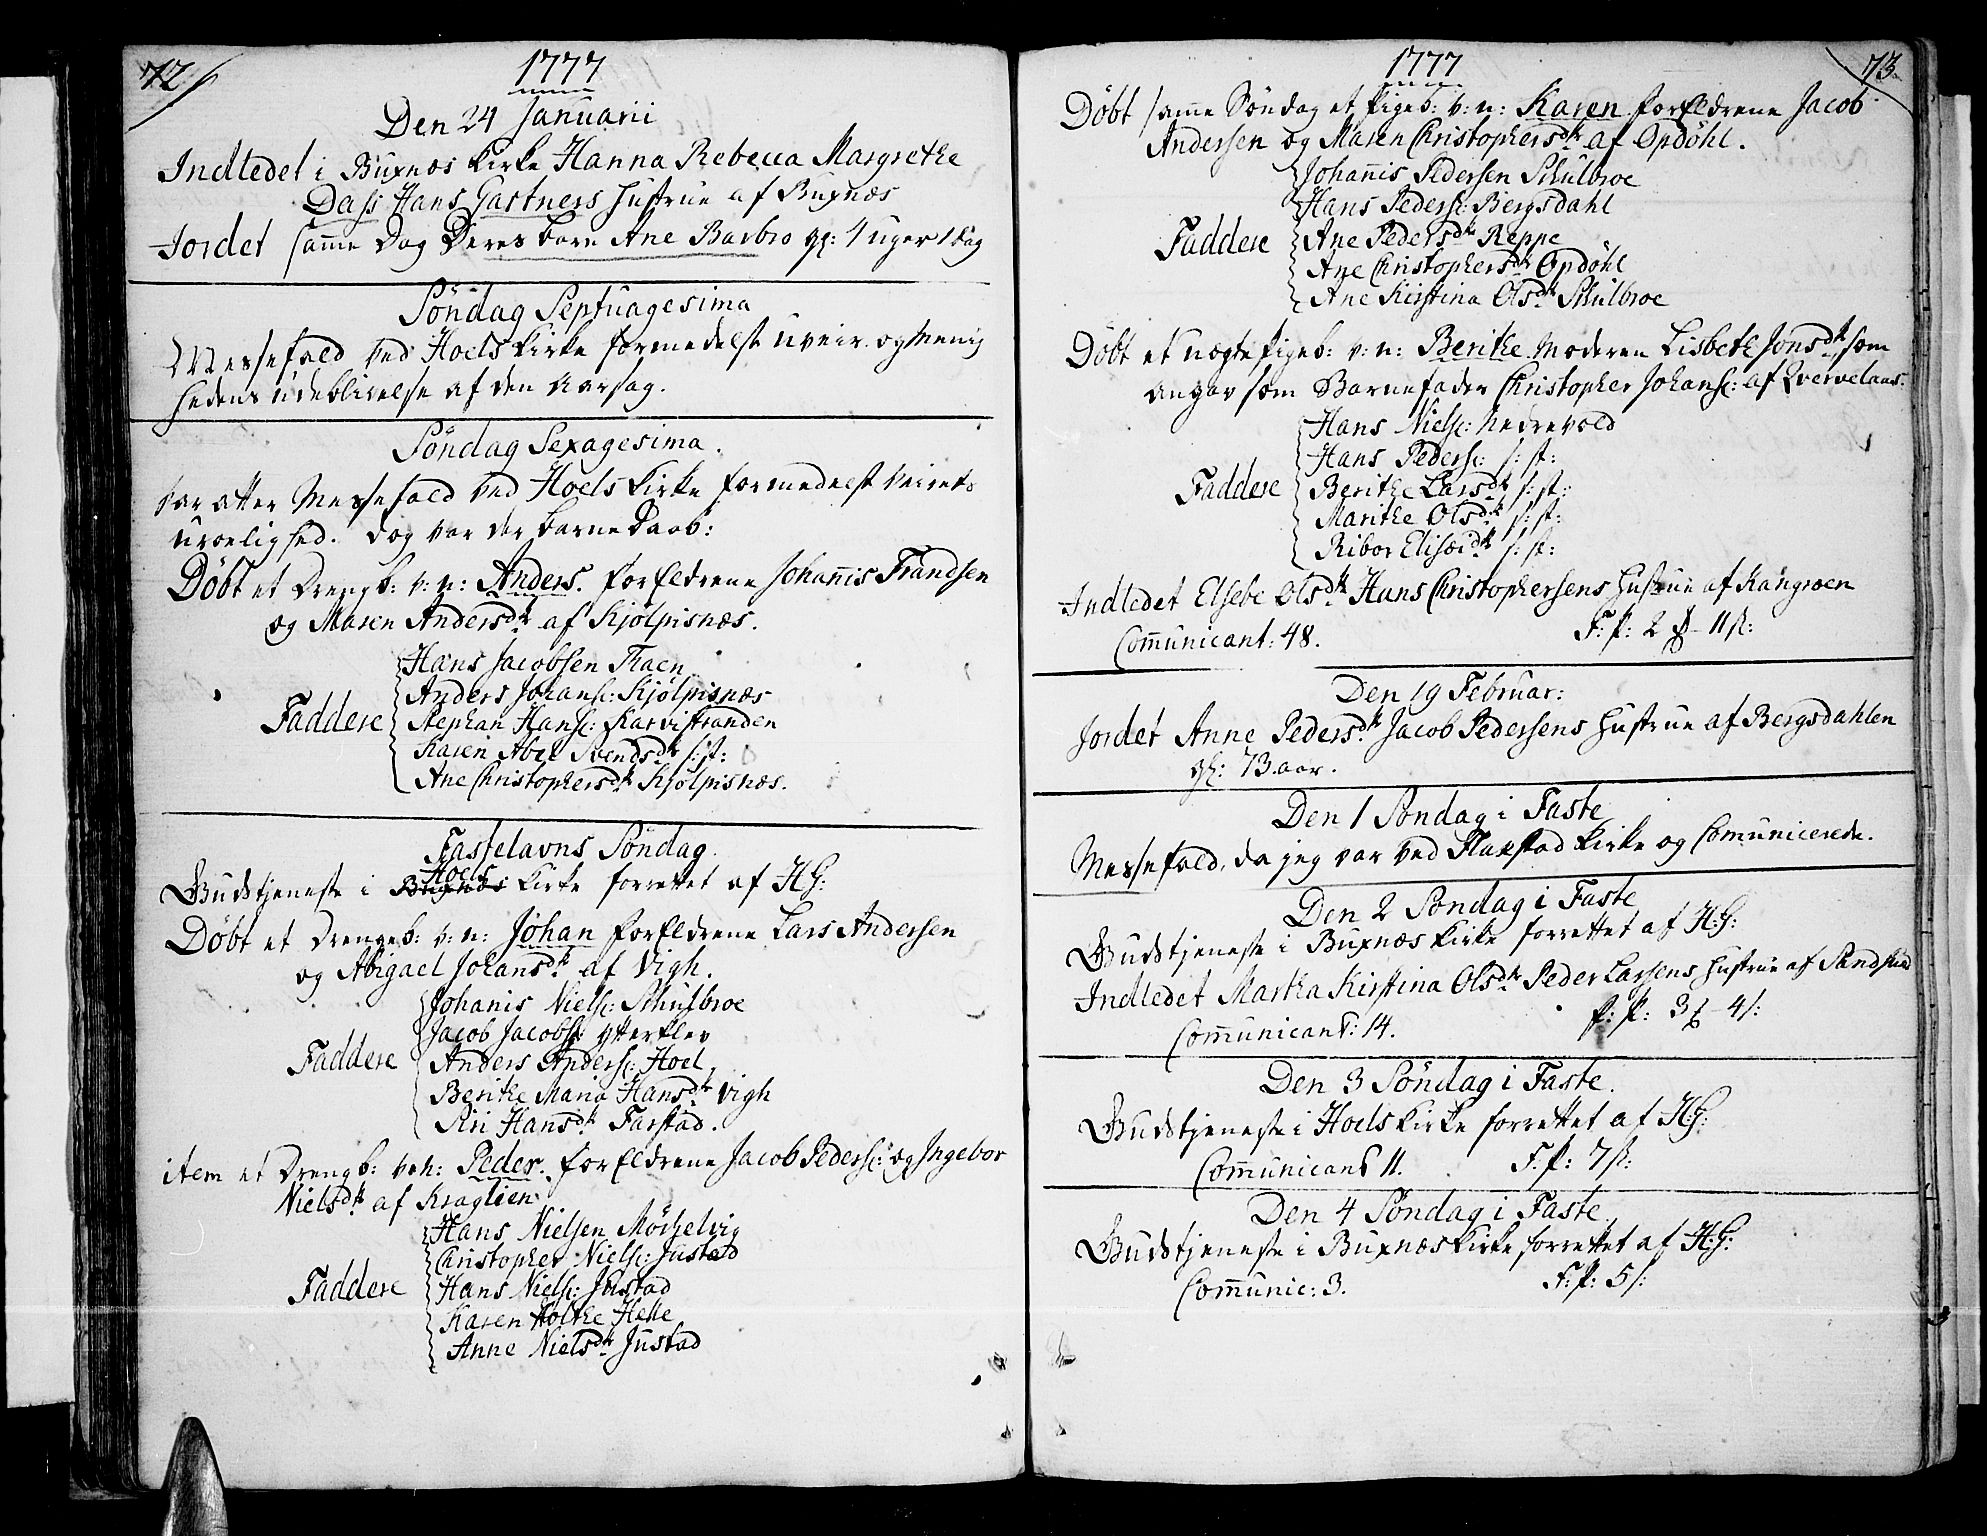 72
1777
Den 24 Januarii
Indledet i Buxnæs Kirke Hanna Rebecca Margrethe
Dass Hans Gartners Hustrue af Buxnæs
Jordet samme Dag Deres barn Ane Barbro gl: 4 uger 1 dag
Söndag Septuagesima
Messefald ved Hoels Kirke formedelst uveir og Menig
hedens udeblivelse af den Aarsag.
Söndag Sexagesima.
var atter Messefald ved Hoels Kirke formedelst Veirets
uroelighed. dog var der barne Daab:
Döbt et Drengb: v: n: Anders. forældrene Johannis Frandsen
og Maren Andersdr af Kjölpisnæs.
Hans Jacobsen Traen
Anders Johans: Kjölpisnæs
Faddere Stephan Hans: Karvistranden
Karen Abel Svendsdr s: st:
Ane Christophersdr Kjölpisnæs.
Fastelavns Söndag.
Hoels
Gudstjeneste i Buxnæs Kirke forrettet af HG:
Döbt et Drengeb: v: n: Johan forældrene Lars Andersen
og Abigael Johansdr af Vigh.
Johanis Niels: Schulbroe
Jacob Jacobs: Ytterklev
Faddere Anders Anders: Hoel
Berithe Maria Hansdr Vigh
Siri Hansdr Farstad.
item et Drengb: v: n: Peder. forældrene Jacob Peders: og Ingebor
Nielsdr af Kraglien
Hans Nielsen Mörchelvig
Christopher Niels: Justad
Faddere Hans Niels: Justad
Karen Holthe Helle
Anne Nielsdr Justad
73.
1777
Döbt samme Söndag et Pigeb: v: n: Karen forældrene Jacob
Andersen og Maren Christophersdr af Opdöhl.
Johannis Pedersen Schulbroe
Hans Peders: Bergsdahl
Faddere Ane Pedersdr Reppe
Ane Christophersdr Opdöhl
Ane Kirstina Olsdr Schulbroe
Döbt et uægte Pigeb: v: n: Berithe Moderen Lisbeth Jonsdr som
angav som Barnefader Christopher Johans: af
Hans Niels: Nedrevold
Hans Peders: s: st:
Faddere Berithe Larsdr s: st:
Marithe Olsdr s: st:
Ribor Elisæidr s: st:
Indledet Elsebe Olsdr Hans Christophersens Hustrue af Kangroen
Communicant: 48. F: P: 2 - 11 s:
Den 19 Februar:
Jordet Anne Pedersdr Jacob Pedersens Hustrue af Bergsdahlen
gl: 73 aar.
Den 1 Söndag i Faste
Messefald, da jeg var ved Flakstad Kirke og Comunicerede.
Den 2 Söndag i Faste
Gudstjeneste i Buxnæs Kirke forrettet af H: G:
Indledet Martha Kirstina Olsdr Peder Larsens Hustrue af Sandsund
Communicant: 14. F: P: 3 - 4 s:
Den 3 Söndag i Faste.
Gudstjeneste i Hoels Kirke forrettet af HG:
Communicant 11. F: P: 7 s:
Den 4 Söndag i Faste
Gudstjeneste i Buxnæs Kirke forrettet af H: G:
Communic: 3. F: P: 5 s: